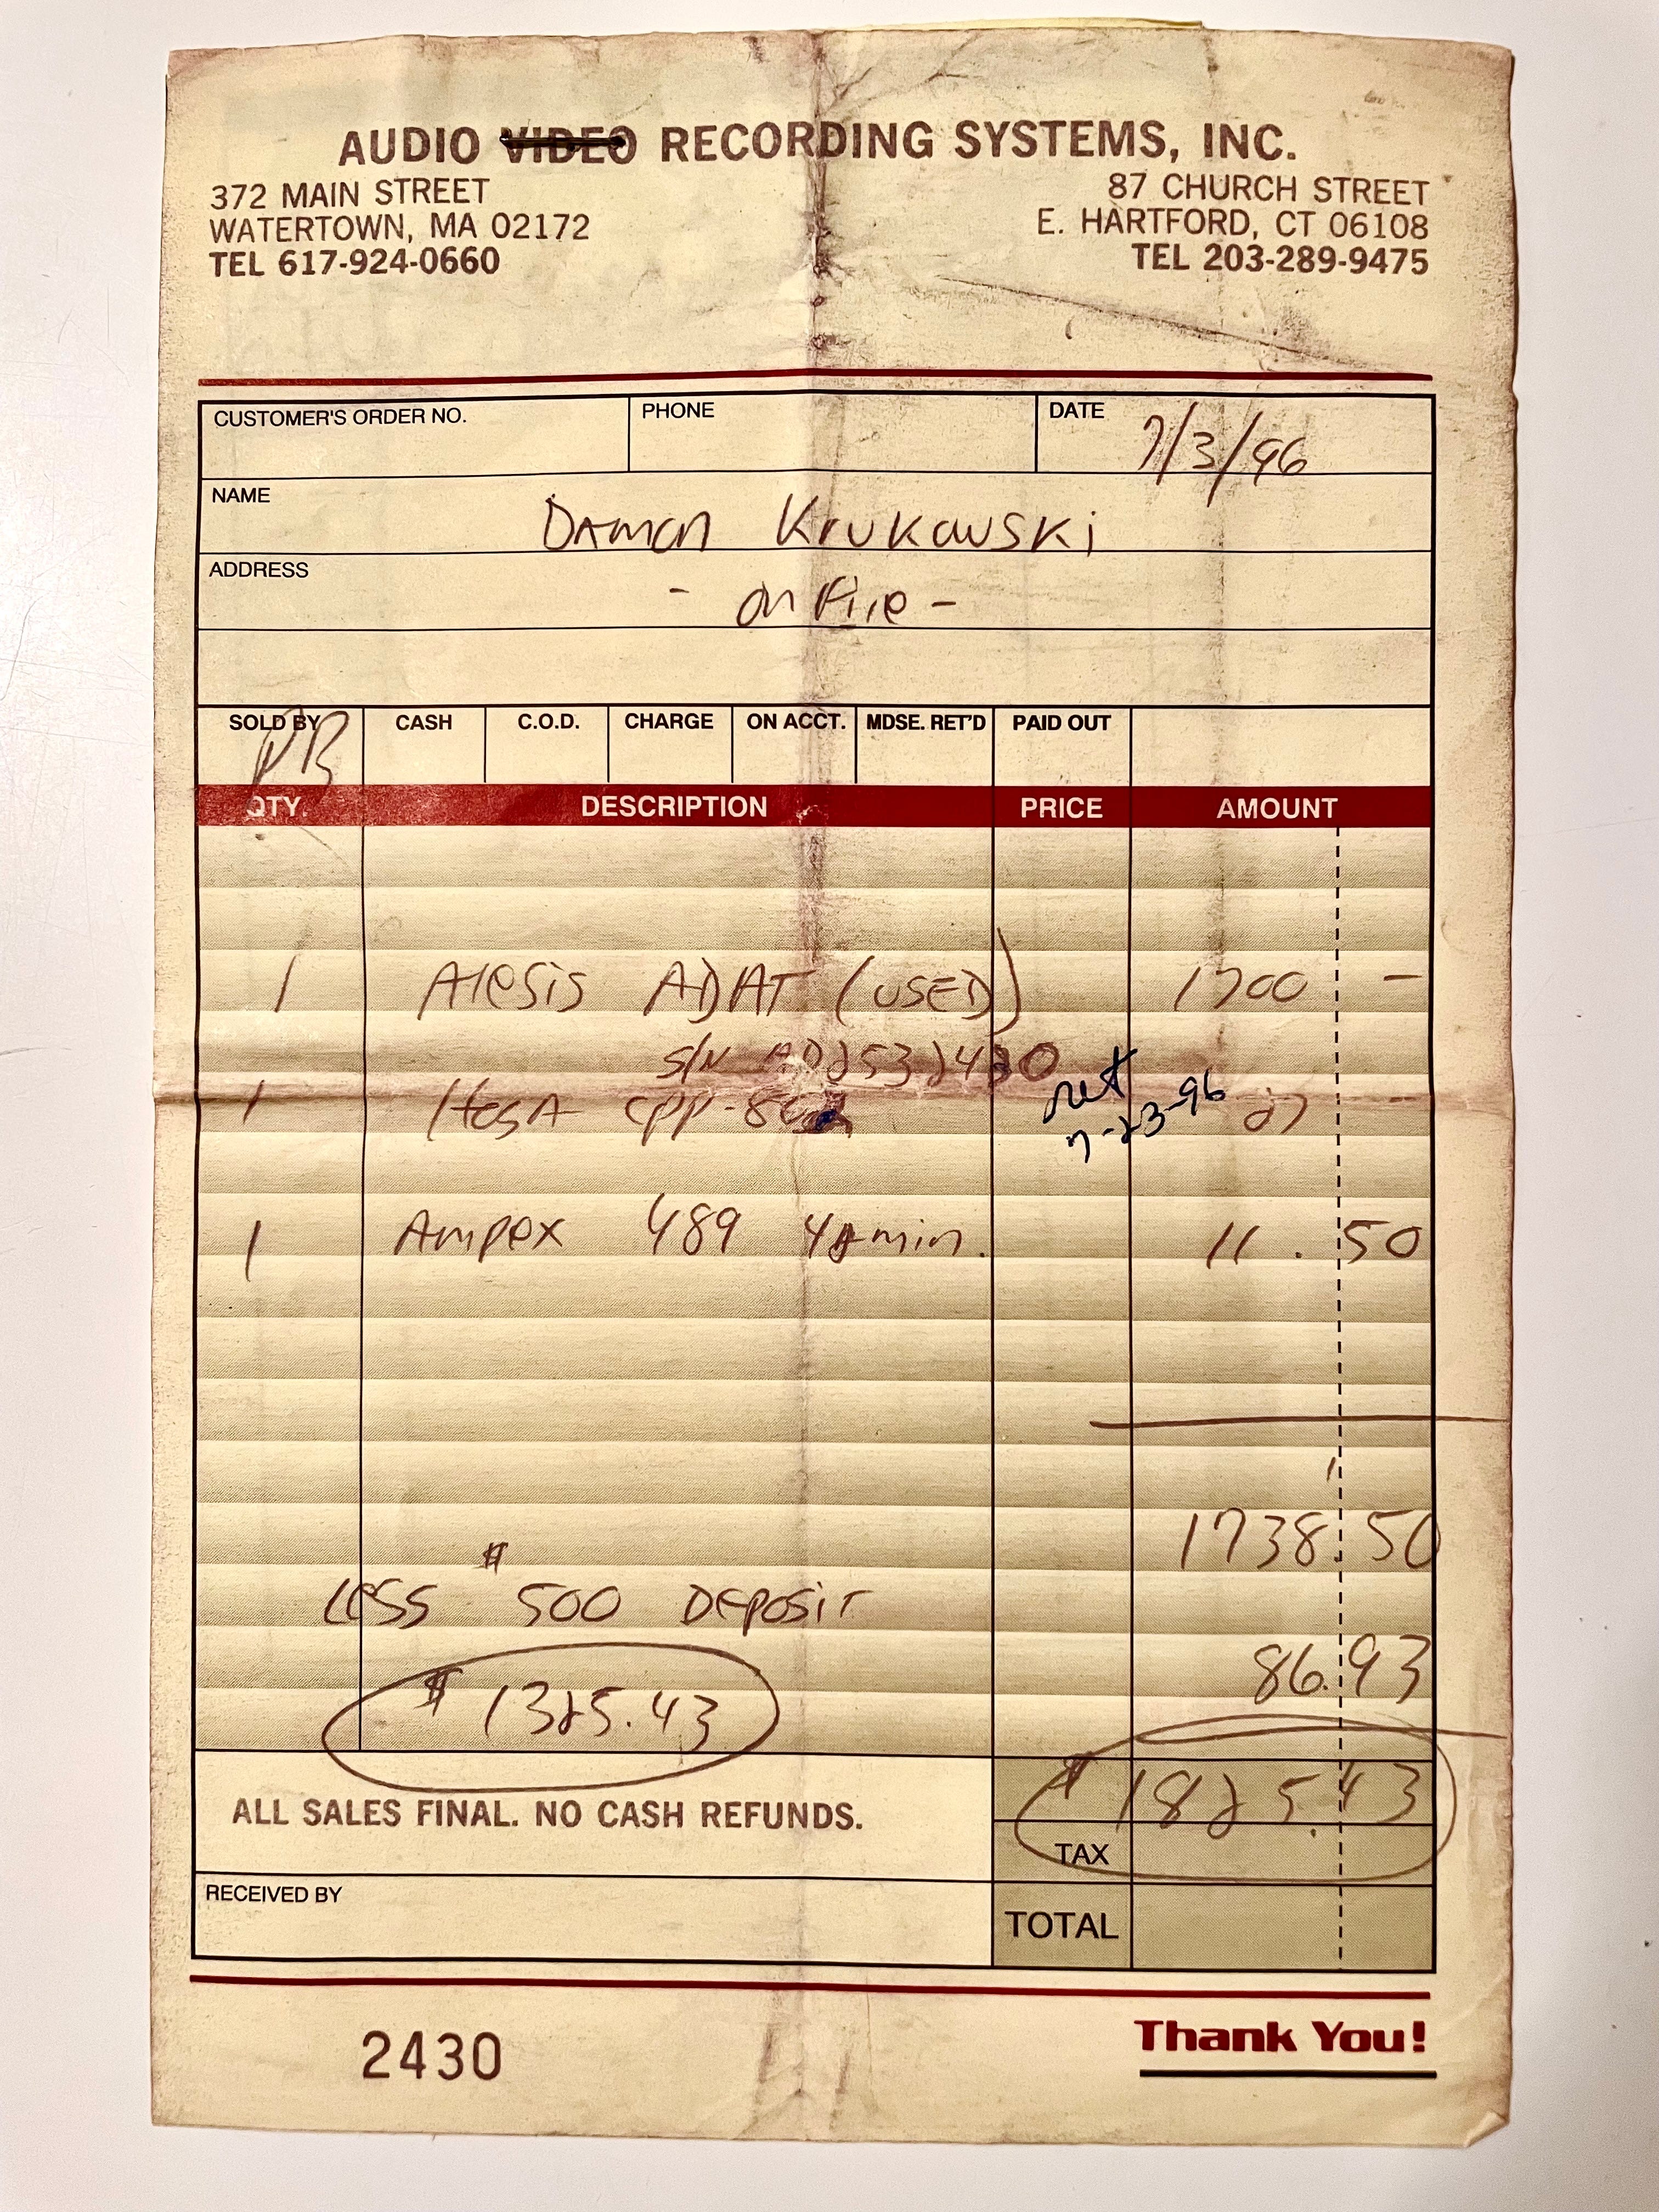 AUDIO VIDEO RECORDING SYSTEMS, INC.
372 MAIN STREET
WATERTOWN, MA 02172
TEL 617-924-0660
87 CHURCH STREET
E. HARTFORD, CT 06108
TEL 203-289-9475
CUSTOMER'S ORDER NO. PHONE DATE 7/3/96
NAME Damon Krukowski
ADDRESS - On Fire -
SOLD BY CASH C.O.D. CHARGE ON ACCT. MDSE. RET'D PAID OUT
PB
QTY. DESCRIPTION PRICE AMOUNT
1 Alesis ADAT (USED) 1700 -
S/N AD2532430
1 HosA CPP- ret 27 -
7-23-96
1 Ampex 489 42 min. 11.50
1738.50
Less $500 Deposit
86.93
$1325.43
$1825.43
ALL SALES FINAL. NO CASH REFUNDS.
TAX
RECEIVED BY
TOTAL
2430
Thank You!